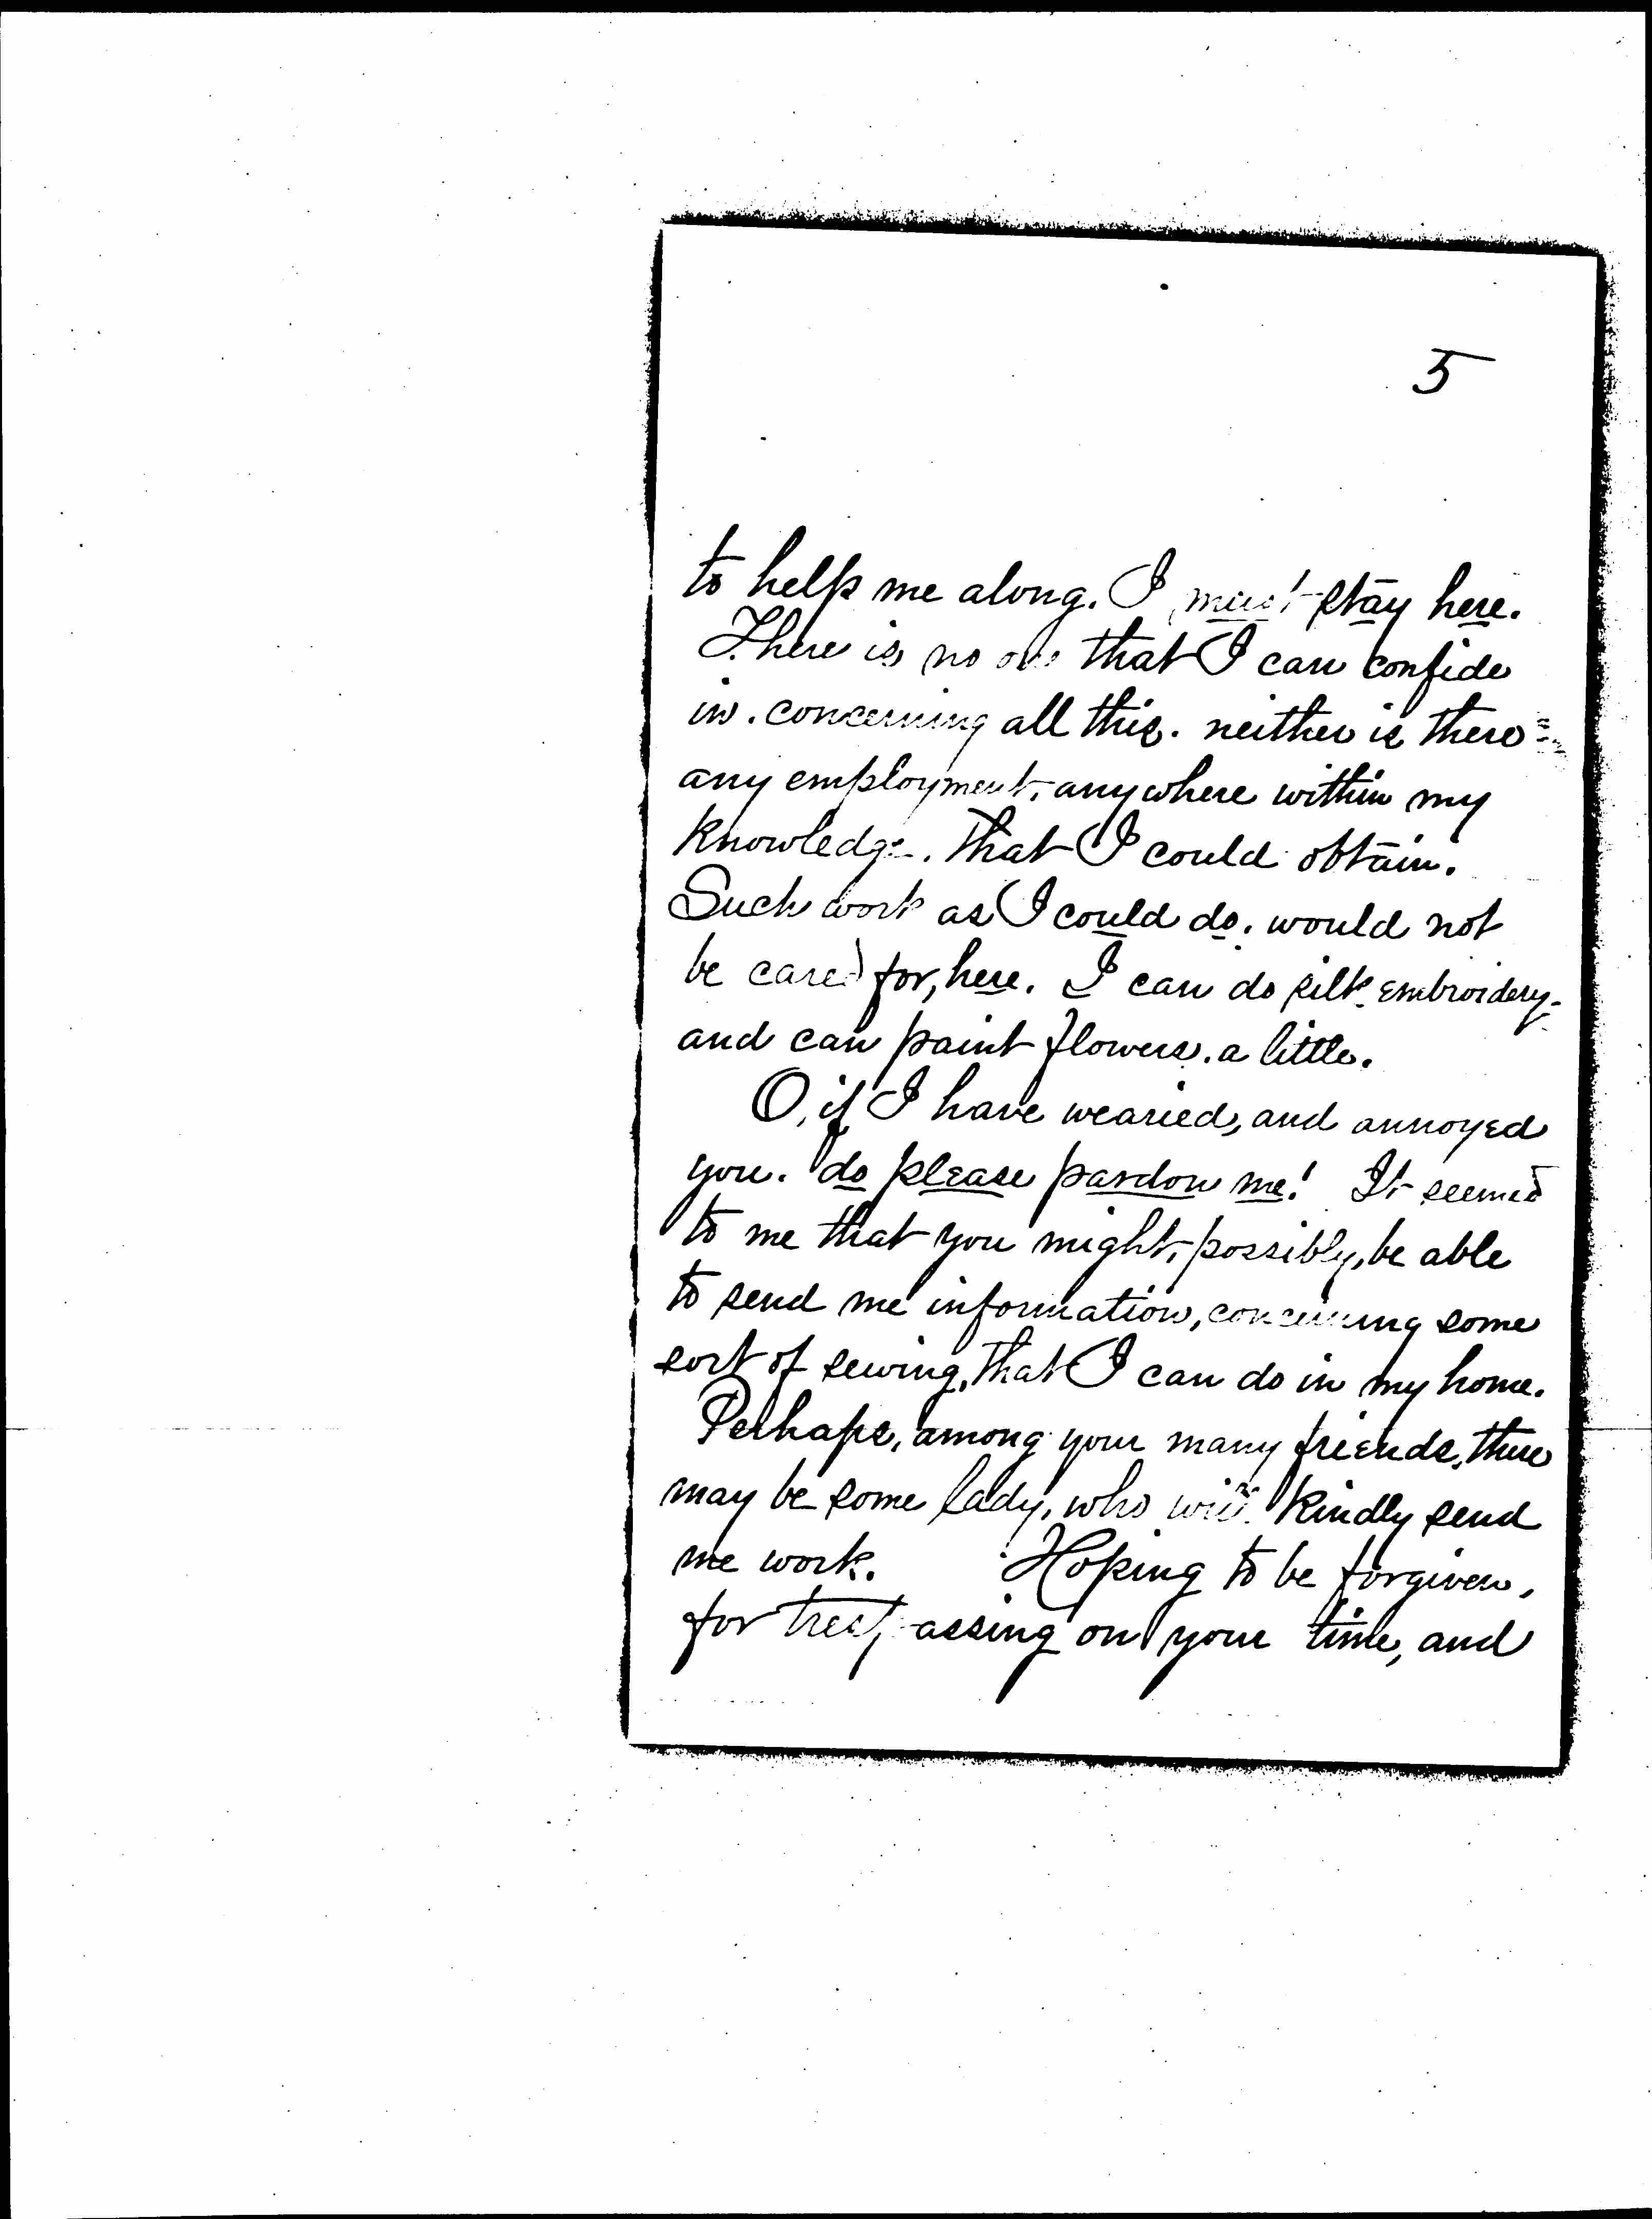 5
to help me along. I must stay here.
There is no one that I can confide
in. concerning all this. neither is there
any employment, anywhere within my
knowledge. that I could obtain.
Such work as I could do. would not
be cared for, here. I can do silk embroidery-
and can paint flowers. a little.
O, if I have wearied, and annoyed
you. do please pardon me! It seemed
to me that you might, possibly, be able
to send me information, concerning some
sort of sewing, that I can do in my home.
Perhaps, among your many friends, there
may be some lady, who will kindly send
me work. Hoping to be forgiven,
for trespassing on your time, and